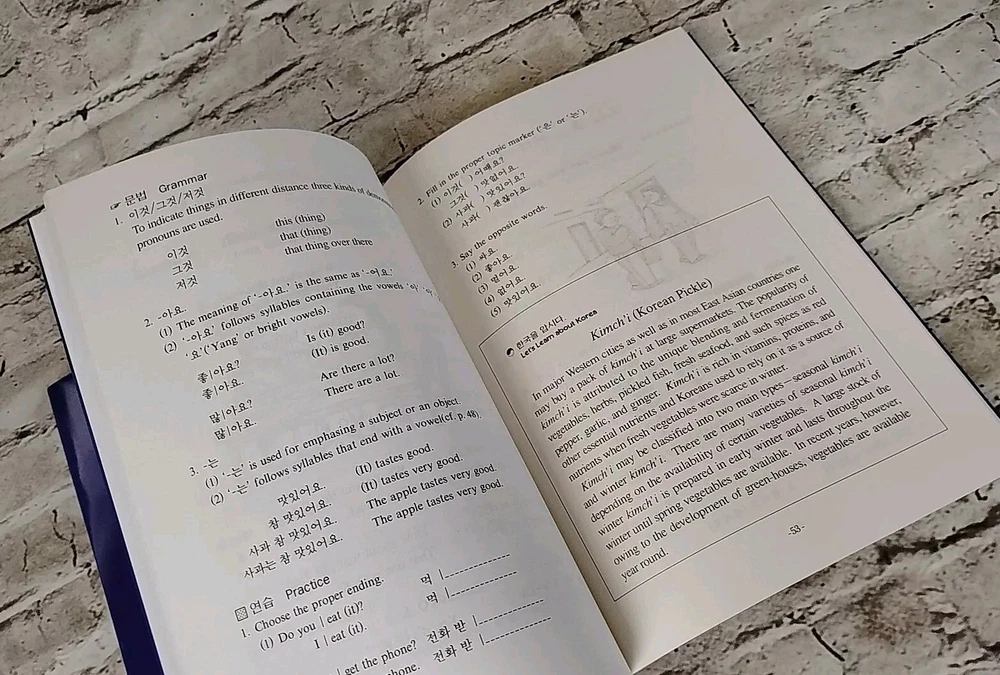 ☞ 문법 Grammar
1. 이것/그것/저것
To indicate things in different distance three kinds of
pronouns are used.
이것 this (thing)
그것 that (thing)
저것 that thing over there
2. -아요.
(1) The meaning of '-아요.' is the same as '-어요.'
(2) '-아요.' follows syllables containing the vowels
('Yang' or bright vowels).
좋|아요? Is (it) good?
좋|아요. (It) is good.
많|아요? Are there a lot?
많|아요. There are a lot.
3. -는
(1) '-는' is used for emphasing a subject or an object.
(2) '-는' follows syllables that end with a vowel(cf. p. 48).
맛있어요. (It) tastes good.
참 맛있어요. (It) tastes very good.
사과 참 맛있어요. The apple tastes very good.
사과는 참 맛있어요. The apple tastes very good.
연습 Practice
1. Choose the proper ending.
(1) Do you | eat (it)? 먹 |
I | eat (it). 먹 |
| get the phone? 전화 받 |
phone. 전화 받 |
2. Fill in the proper topic marker ('은' or '는').
(1) 이것( ) 어때요?
그것( ) 맛없어요.
(2) 사과( ) 맛있어요?
사과( ) 괜찮아요.
3. Say the opposite words.
(1) 싸요.
(2) 좋아요.
(3)
(4) 없어요.
(5) 맛있어요.
한국을 압시다.
Let's Learn about Korea
Kimch'i (Korean Pickle)
In major Western cities as well as in most East Asian countries one
may buy a pack of kimch'i at large supermarkets. The popularity of
kimch'i is attributed to the unique blending and fermentation of
vegetables, herbs, pickled fish, fresh seafood, and such spices as red
pepper, garlic, and ginger. Kimch'i is rich in vitamins, proteins, and
other essential nutrients and Koreans used to rely on it as a source of
nutrients when fresh vegetables were scarce in winter.
Kimch'i may be classified into two main types – seasonal kimch'i
and winter kimch'i. There are many varieties of seasonal kimch'i
depending on the availability of certain vegetables. A large stock of
winter kimch'i is prepared in early winter and lasts throughout the
winter until spring vegetables are available. In recent years, however,
owing to the development of green-houses, vegetables are available
year round.
-53-